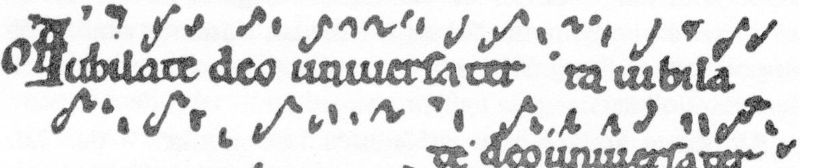 Of Iubilate deo uniuersa ter ra iubila
te deo uniuersa ter